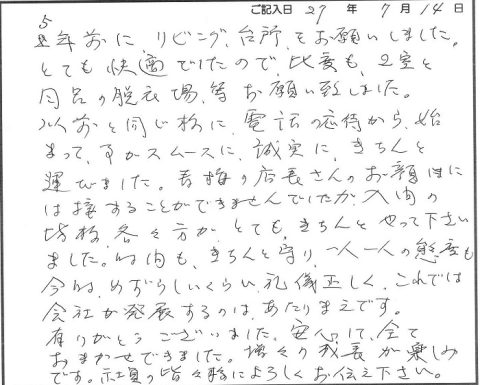 ご記入日 27 年 7 月 14 日
5年前に リビング、台所、をお願いしました。
とても 快適でしたので、此度も、2室と
同品の脱衣場、等お願い致しました。
以前と同じ様に、電話の応待から、始
まって、すべスムースに、誠実に、きちんと
運びました。青梅の店長さんのお顔は
は接することができませんでしたが、入間の
皆様、各々方が、とても、きちんと やって下さい
ました。時間も、きちんと守り、一人一人の態度も
今時、めずらしいくらい、礼儀正しく、これでは
会社が発展するのは、あたりまえです。
有りがとう ございました。安心して、全て
おまかせできました。増々の成長が楽しみ
です。社員の皆々様によろしくお伝え下さい。